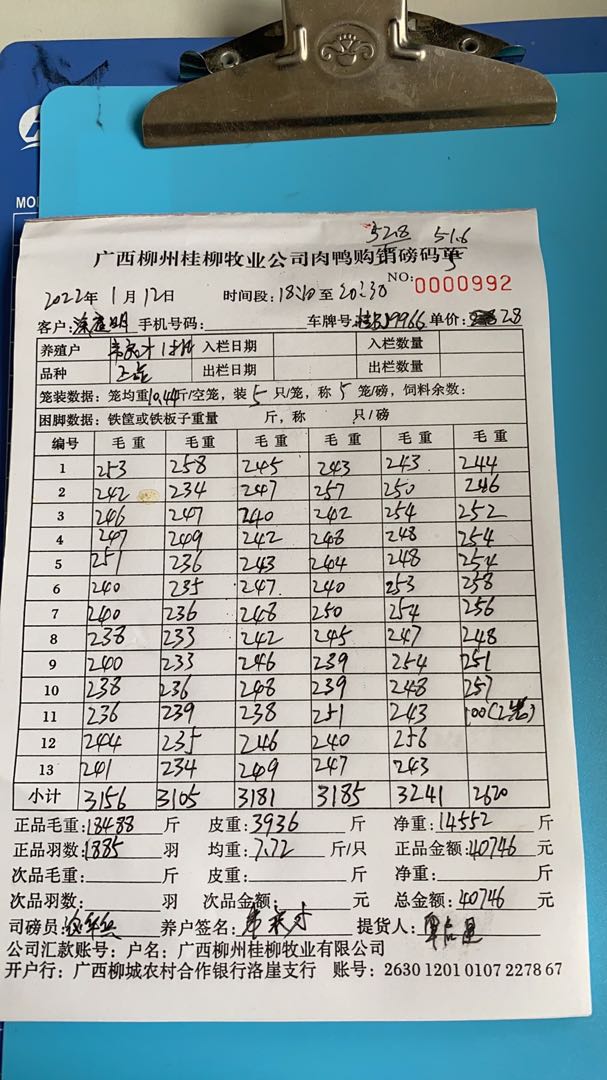 MO
52.8 51.6
广西柳州桂柳牧业公司肉鸭购销磅码单
NO: 0000992
2022年 1月12日 时间段: 18:10至 20:30
客户: 手机号码: 车牌号: 单价: 2.8
养殖户 入栏日期 入栏数量
品种 正品 出栏日期 出栏数量
笼装数据: 笼均重10.44斤/空笼, 装 5 只/笼, 称 5 笼/磅, 饲料余数:
困脚数据: 铁筐或铁板子重量 斤, 称 只/磅
编号 毛重 毛重 毛重 毛重 毛重 毛重
1 253 258 245 243 243 244
2 242 234 247 257 250 246
3 246 247 240 242 254 252
4 247 249 242 248 248 254
5 251 236 243 244 248 254
6 240 235 247 240 253 258
7 240 236 248 250 254 256
8 238 233 242 245 247 248
9 240 233 246 239 254 251
10 238 236 248 239 248 257
11 236 239 238 251 243 100(2笼)
12 244 235 246 240 256
13 241 234 249 247 243
小计 3156 3105 3181 3185 3241 2620
正品毛重: 18488 斤 皮重: 3936 斤 净重: 14552 斤
正品羽数: 1885 羽 均重: 7.72 斤/只 正品金额: 40746 元
次品毛重: 斤 皮重: 斤 净重: 斤
次品羽数: 羽 次品金额: 元 总金额: 40746 元
司磅员: 养户签名: 提货人:
公司汇款账号: 户名: 广西柳州桂柳牧业有限公司
开户行: 广西柳城农村合作银行洛崖支行 账号: 2630 1201 0107 2278 67